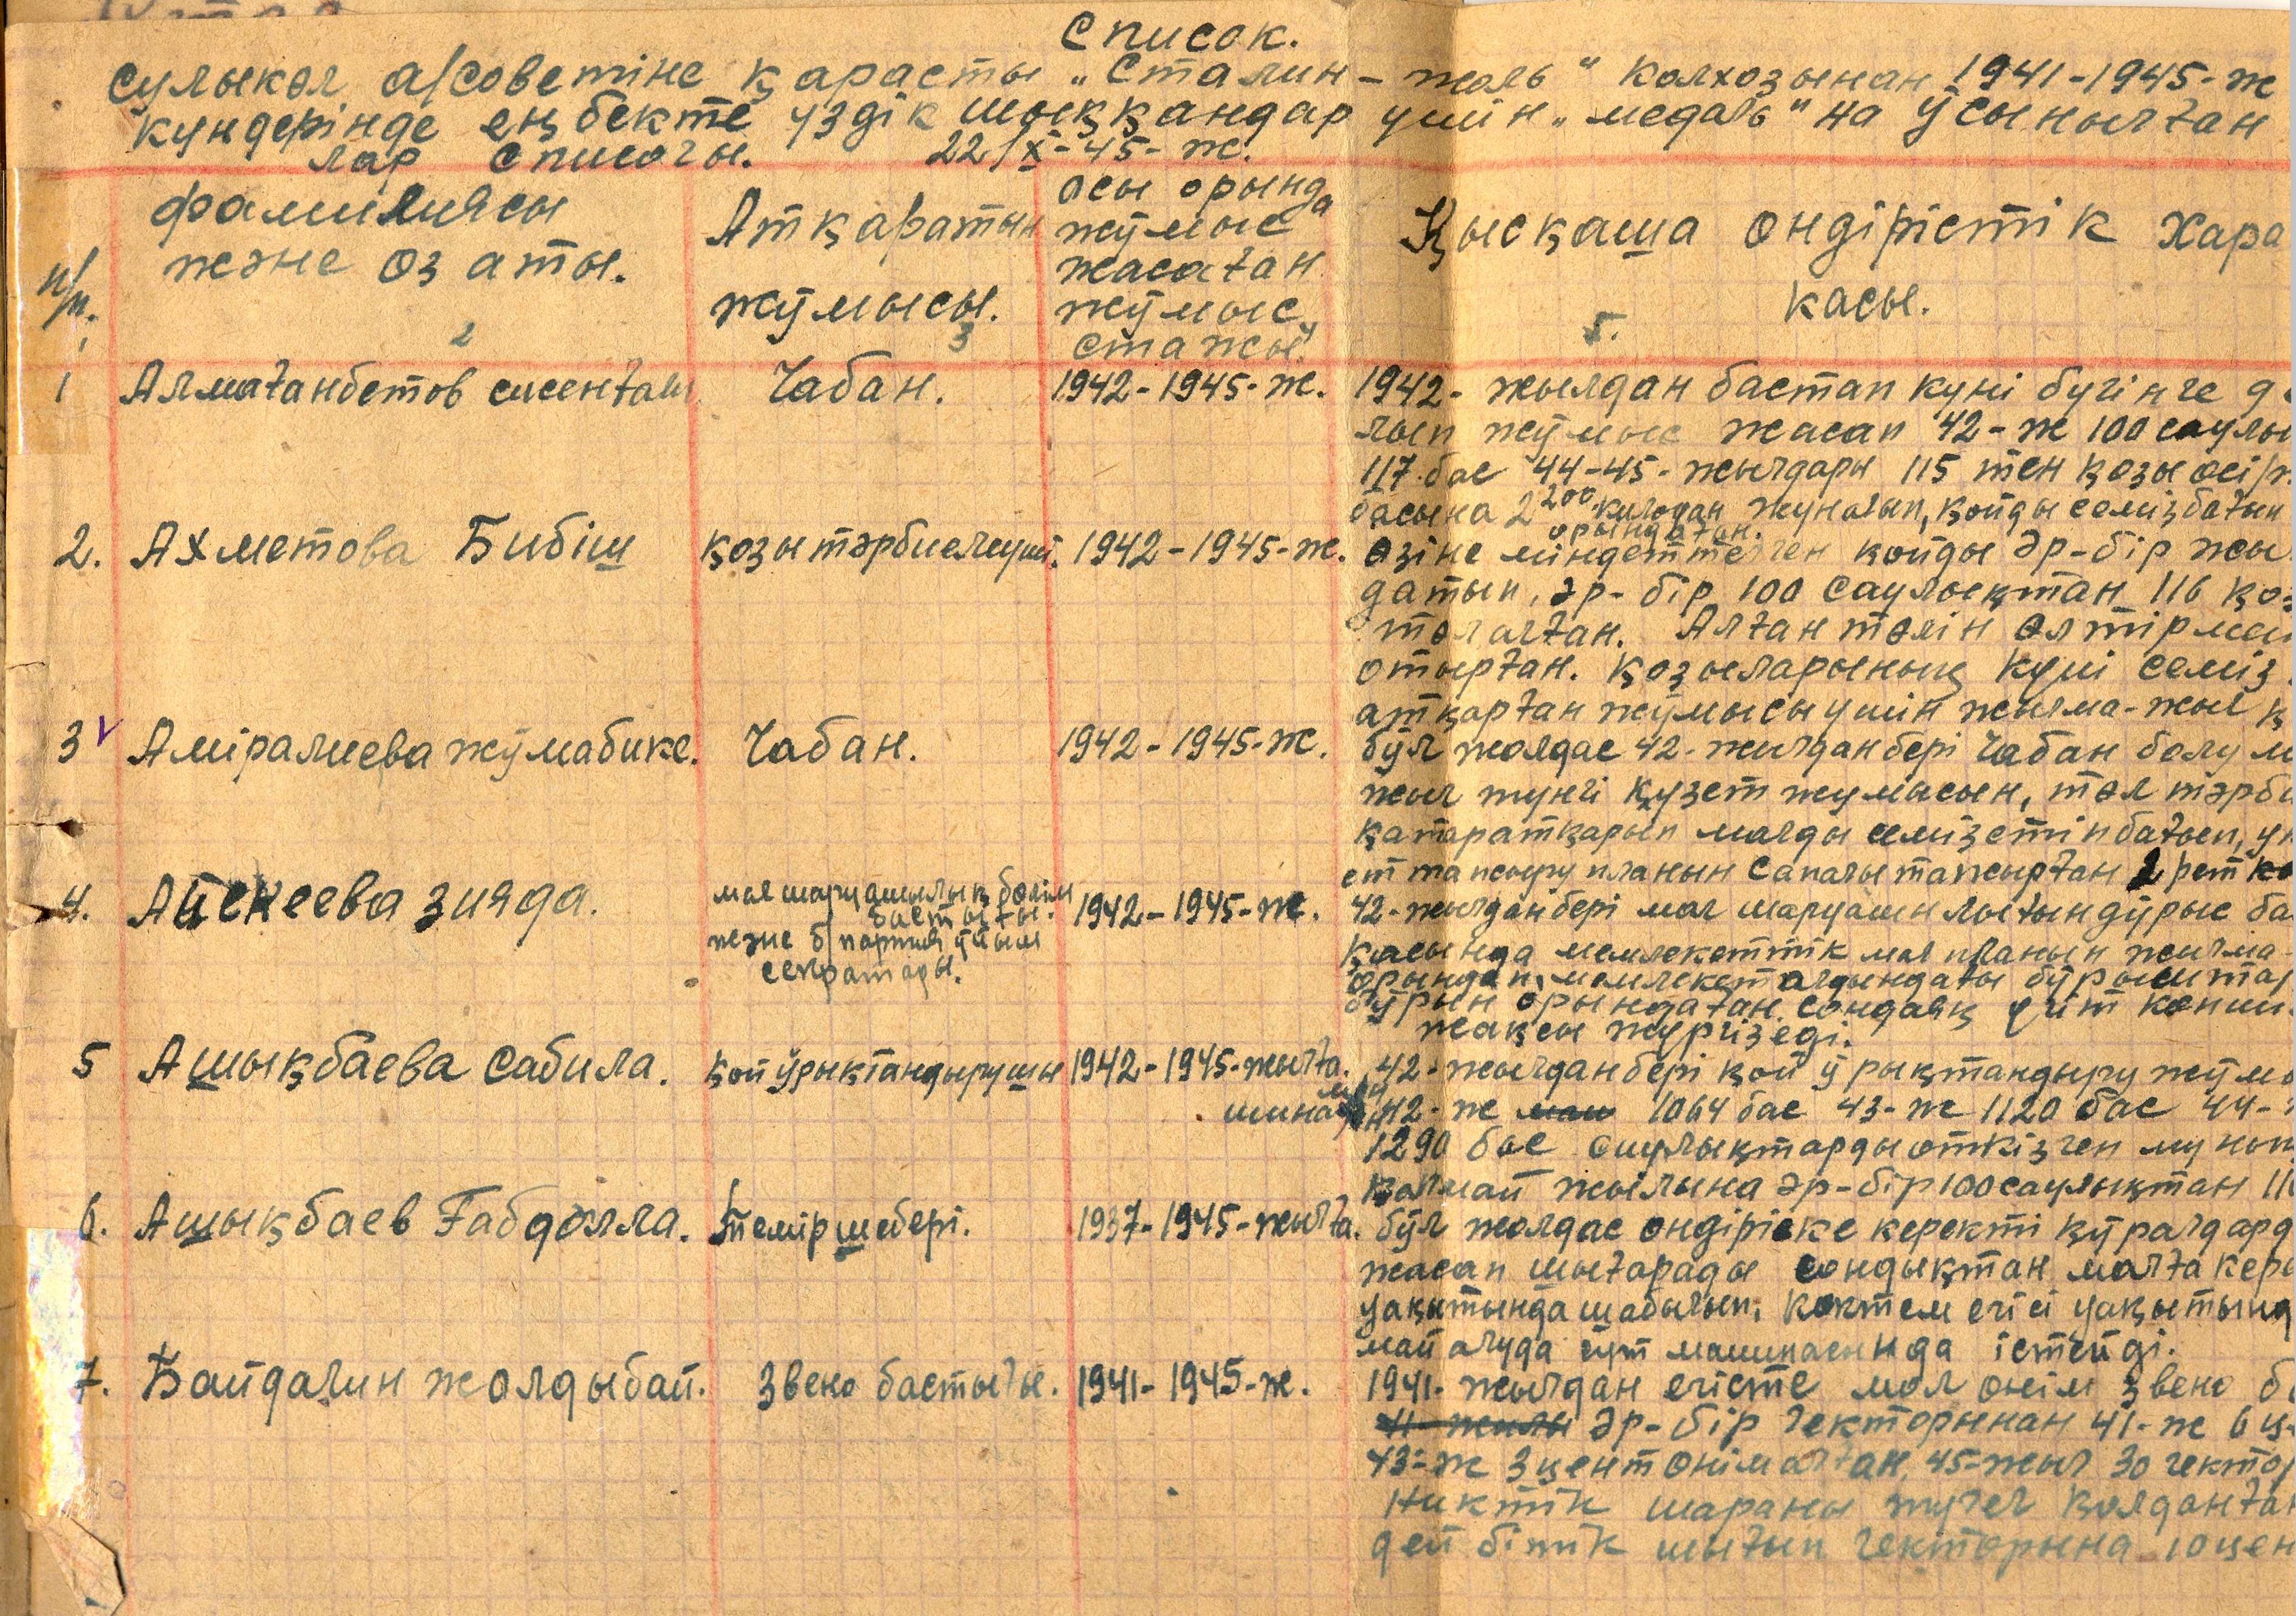 Список.
Сулыкөл а/советіне қарасты „Сталин-жолы" колхозынан 1941-1945-ж
күндерінде еңбекте үздік шыққандар үшін „медаль"ға ұсынылған
лар списогы. 22/X-45-ж.
п/п.
фамилиясы
және өз аты.
2
Атқаратын
жұмысы.
3
осы орында
жұмыс
жасаған
жұмыс
стажы.
Қысқаша өндірістік хара
касы.
5.
1 Алмағанбетов Сисенғали Чабан. 1942-1945-ж.
1942-жылдан бастап күні бүгінге д
лып жұмыс жасап 42-ж 100 саулы
117 бас 44-45-жылдары 115 тен қозы өсір
басына 2 200 килодан жүн алып, қойды семіз бағып
орындаған.
2. Ахметова Бибіш қозы тәрбиелеуші. 1942-1945-ж.
өзіне міндеттелген қойды әр-бір жы
датып, әр-бір 100 саулықтан 116 қоз
төл алған. Алған төлін өлтірмей
отырған. Қозыларының күйі семіз.
атқарған жұмысы үшін жылма-жыл қ
3 Аміралиева Жұмабике. Чабан. 1942-1945-ж.
бұл жолдас 42-жылдан бері чабан болу м
жыл түнгі күзет жұмысын, төл тәрби
қатар атқарып малды семізетіп бағып, ү
ет тапсыру планын сапалы тапсырған 2 рет
4. Айекеева Зияда. мал шаруашылық бөлім
бастығы.
және б/партия ұйым
секратары.
1942-1945-ж.
42-жылдан бері мал шаруашылығын дұрыс ба
қасында мемлекеттік мал планын жылма-
орындап, мемлекет алдындағы
бұрын орындаған. Сондай-ақ үгіт көпші
жақсы жүргізеді.
5 Ашықбаева Сабила. Қой ұрықтандырушы 1942-1945-жылға.
42-жылдан бері қой ұрықтандыру жұмы
42-ж 1064 бас 43-ж 1120 бас 44-
1290 бас саулықтарды өткізген мұнан
қалмай жылына әр-бір 100 саулықтан 11
6. Ашықбаев Ғабдолла. Темір шебері. 1937-1945-жылға.
бұл жолдас өндіріске керекті құралдард
жасап шығарады сондықтан малға кере
уақытында шабылып, көктем егісі уақытынд
май алуда сүт машинасында істейді.
7. Байдалин Жолдыбай. Звено бастығы. 1941-1945-ж.
1941-жылдан егісте мол өнім звено б
41-жылы әр-бір гекторынан 41-ж 6 ц-
43-ж 3 цент өнім алған, 45-жыл 30 гектор
никтік шараны түгел қолданған
дей бітік шығып гекторына 10 цен